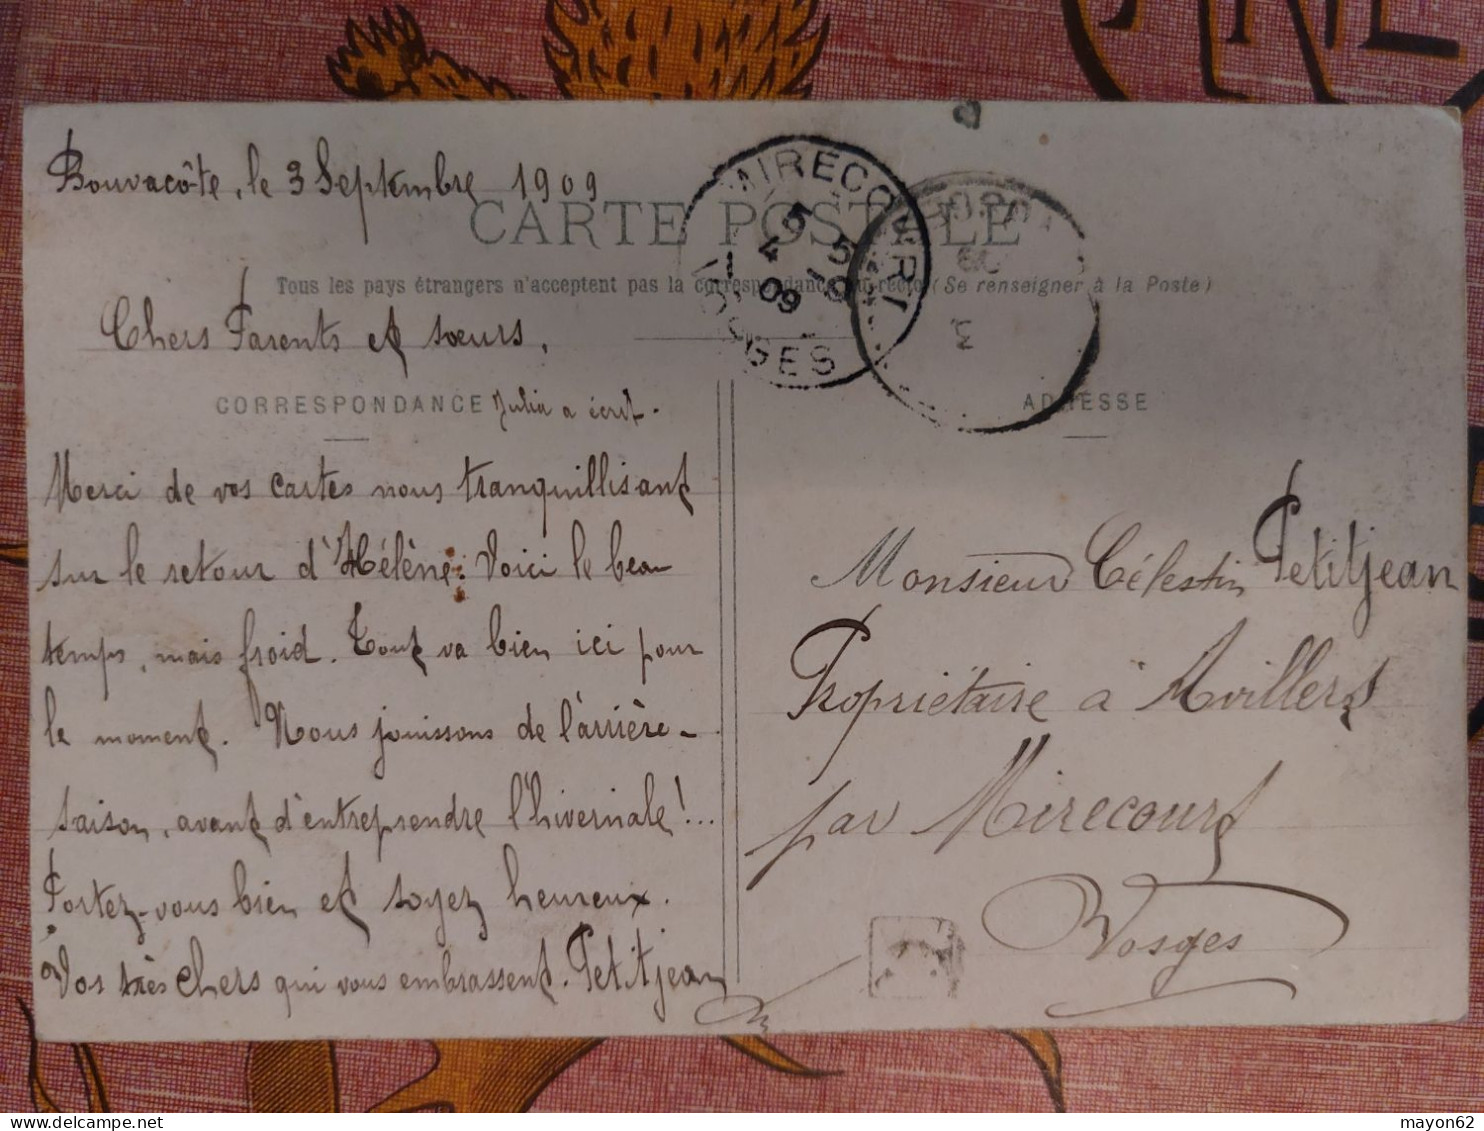 Bouvacôte, le 3 Septembre 1909
CARTE POSTALE
Tous les pays étrangers n'acceptent pas la correspondance au recto (Se renseigner à la Poste)
Chers Parents et sœurs,
CORRESPONDANCE
Julia a écrit.
Merci de vos cartes nous tranquillisant
sur le retour d'Hélène. Voici le beau
temps, mais froid. Tout va bien ici pour
le moment. Nous jouissons de l'arrière-
saison, avant d'entreprendre l'hivernale!...
Portez-vous bien et soyez heureux.
Vos très chers qui vous embrassent. Petitjean
MIRECOURT
5 5
4 9
09
VOSGES
09
ADRESSE
Monsieur Célestin Petitjean
Propriétaire à Avillers
par Mirecourt
Vosges
mayon62